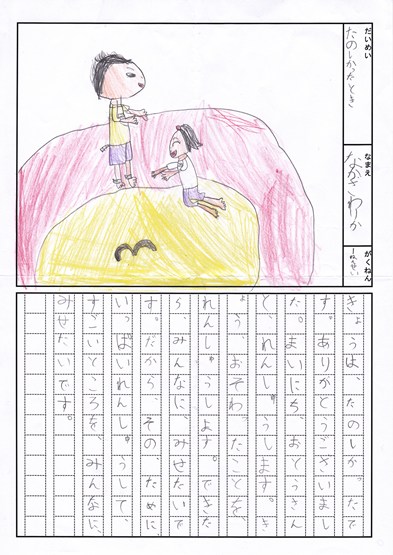 だいめい
たのしかったとき
なまえ
がくねん
1ねんせい
きょうは、たのしかったで
す。ありがとうございまし
た。まいにち、おとうさん
と、れんしゅうします。き
ょう、おそわったことを、
れんしゅうします。できた
ら、みんなに、みせたいで
す。だから、その、ために、
いっぱいれんしゅうして、
すごいところを、みんなに、
みせたいです。